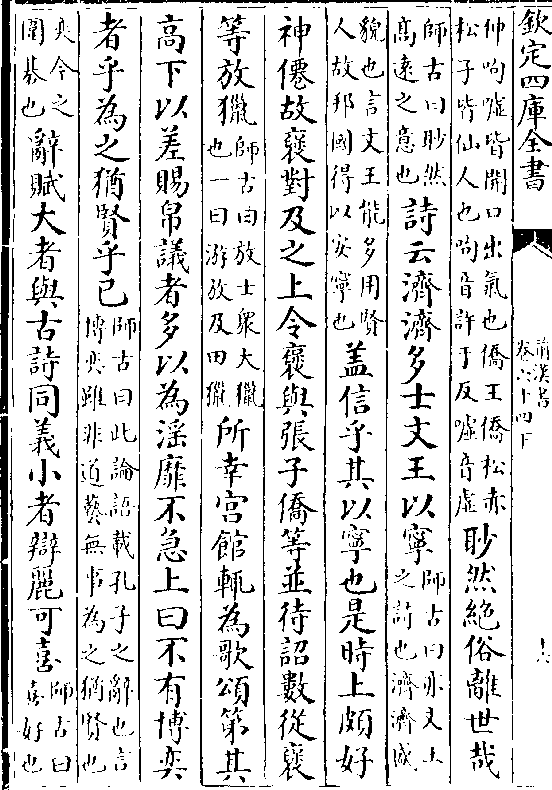 欽定四庫全書
前漢書
卷六十四下
十六
仲呴噓皆開口出氣也僑王僑松赤
松子皆仙人也呴音許于反噓音虛
眇然絶俗離世哉
師古曰眇然
髙遠之意也
詩云濟濟多士文王以寧
師古曰亦文王
之詩也濟濟盛
貌也言文王能多用賢
人故邦國得以安寧也
盖信乎其以寧也是時上頗好
神僊故襃對及之上令襃與張子僑等並待詔數從襃
等放獵
師古曰放士衆大獵
也一曰游放及田獵
所幸宮館輒為歌頌第其
高下以差賜帛議者多以為淫靡不急上曰不有博奕
者乎為之猶賢乎已
師古曰此論語載孔子之辭也言
博奕雖非道藝無事為之猶賢也
奕今之
圍棊也
辭賦大者與古詩同義小者辯麗可喜
師古曰
喜好也